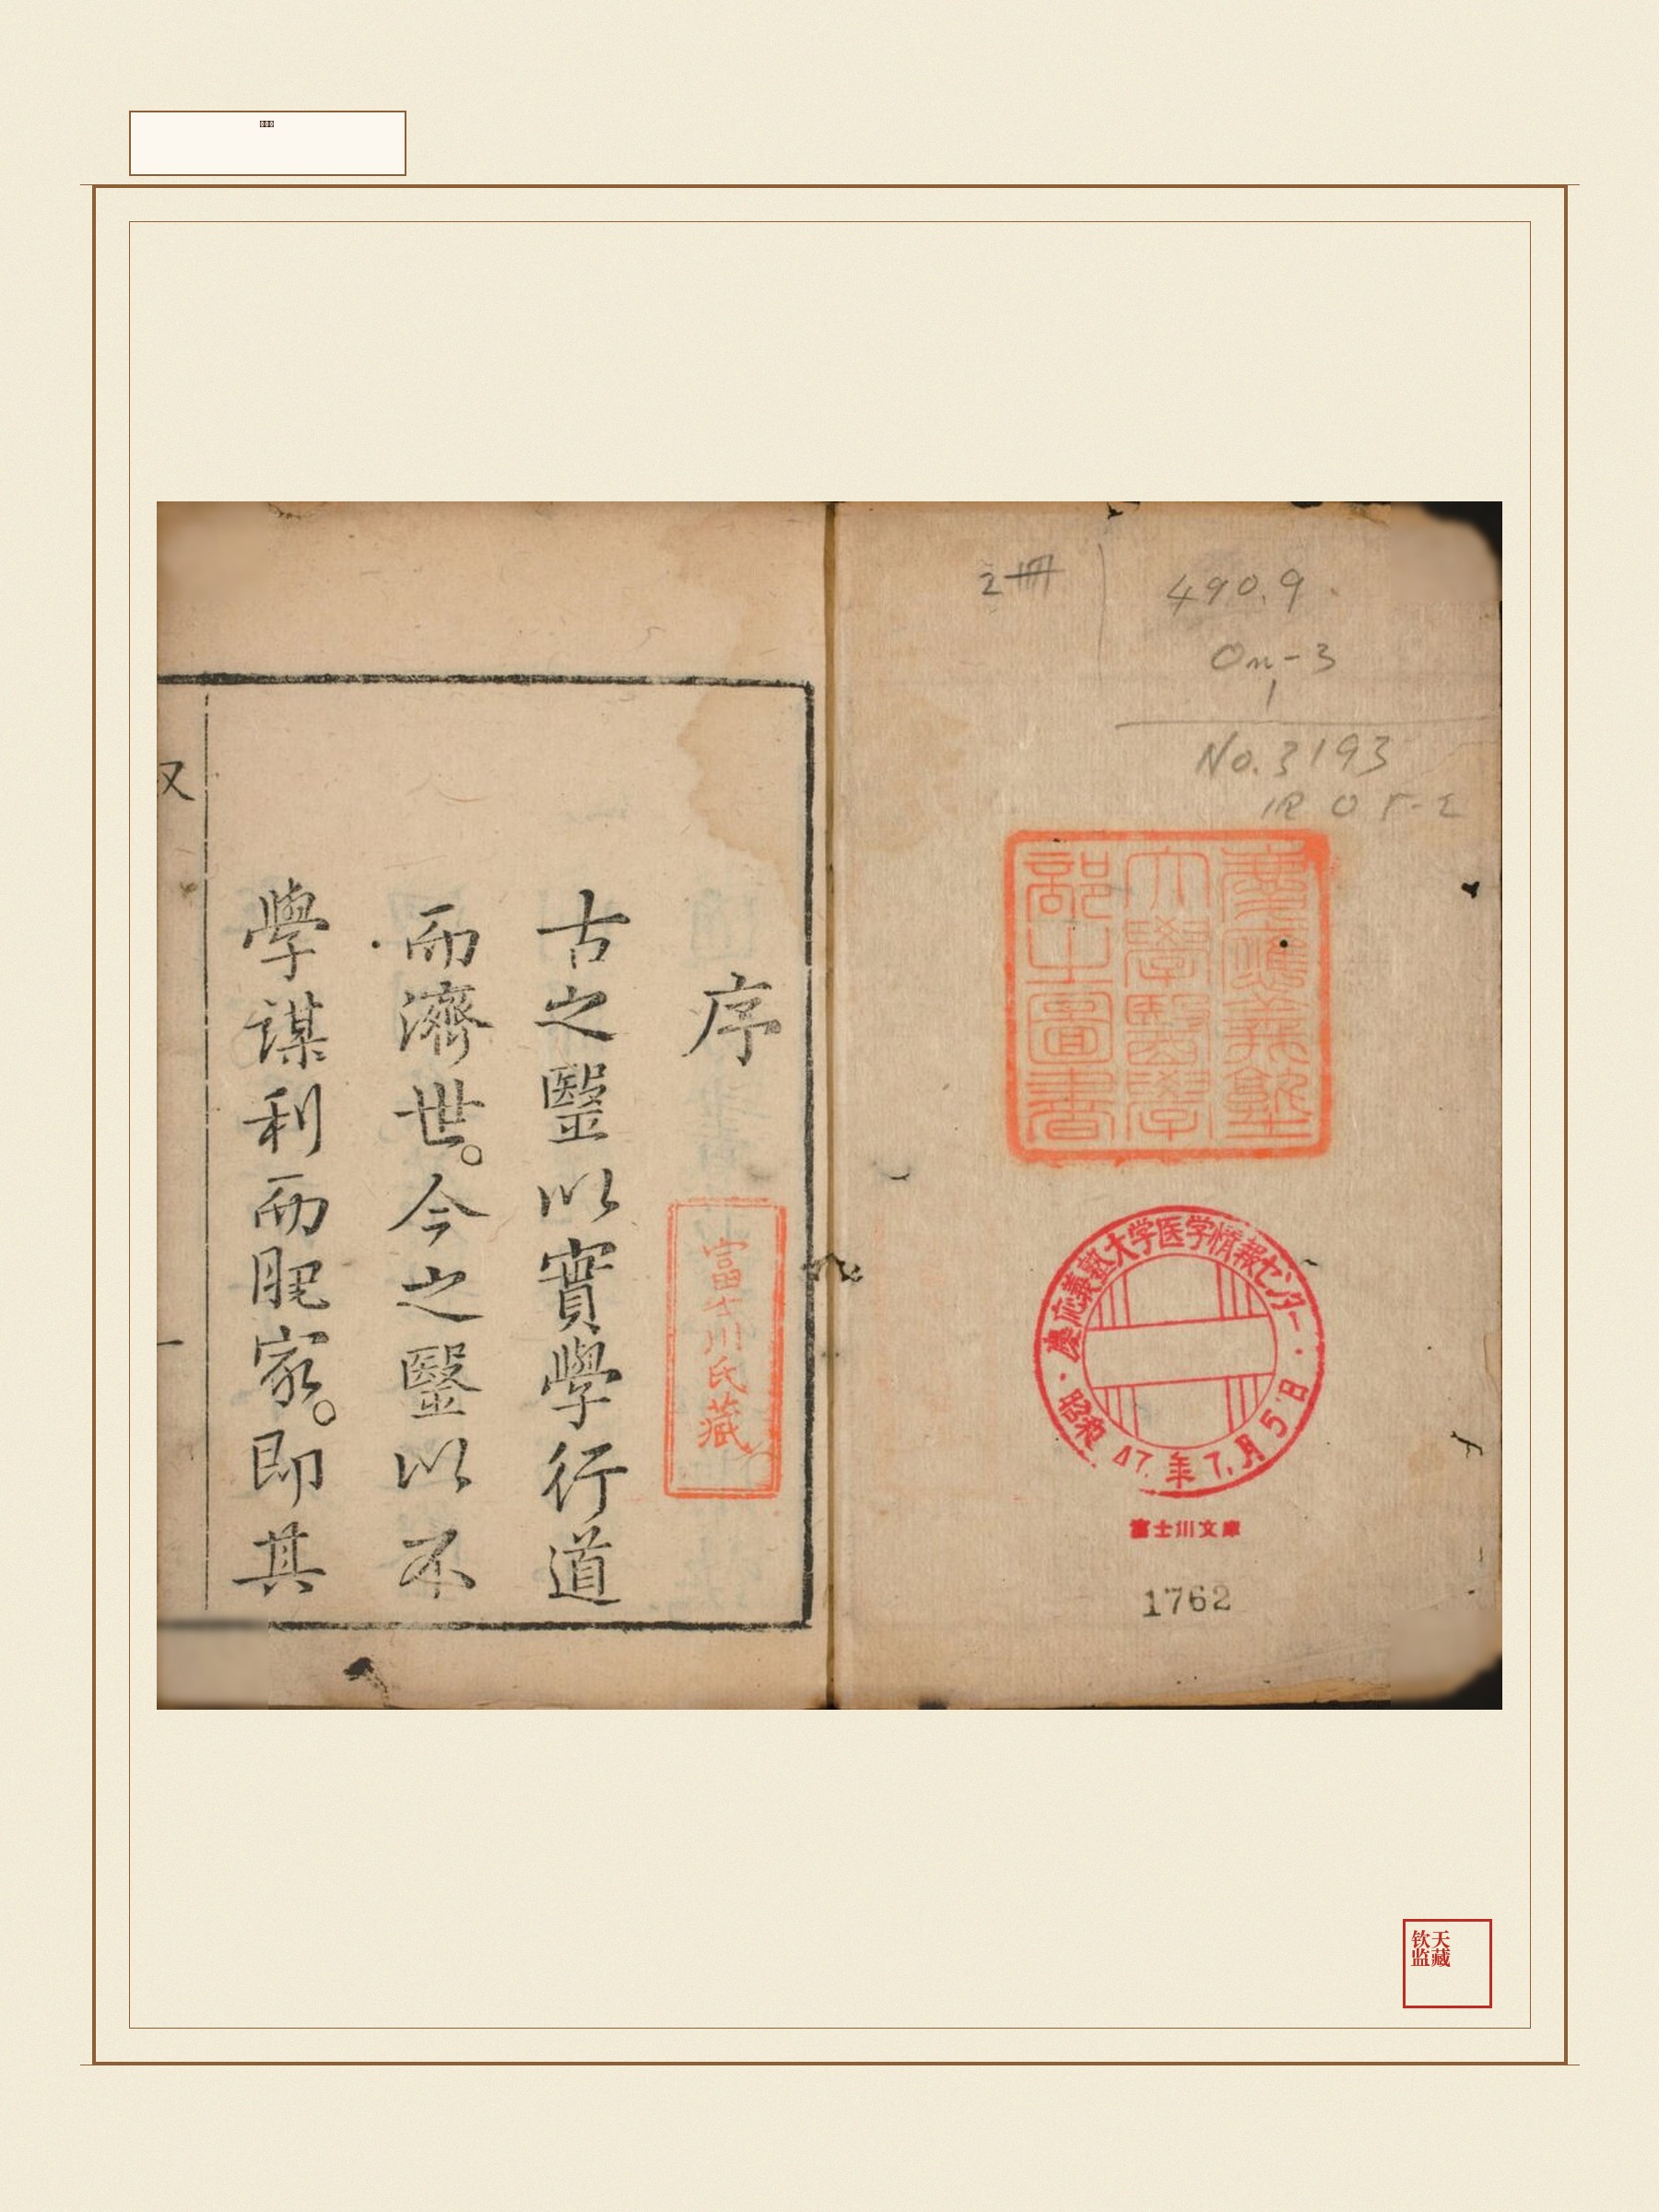 2冊
490.9
On-3
1
No.3193
慶應義塾
大學醫學
部之圖書
慶応義塾大学医学情報センター
昭和47.年7.月5日
富士川文庫
1762
序
富士川氏藏
古之醫以實學行道
而濟世。今之醫以不
學謀利而肥家。即其
一
钦天
监藏